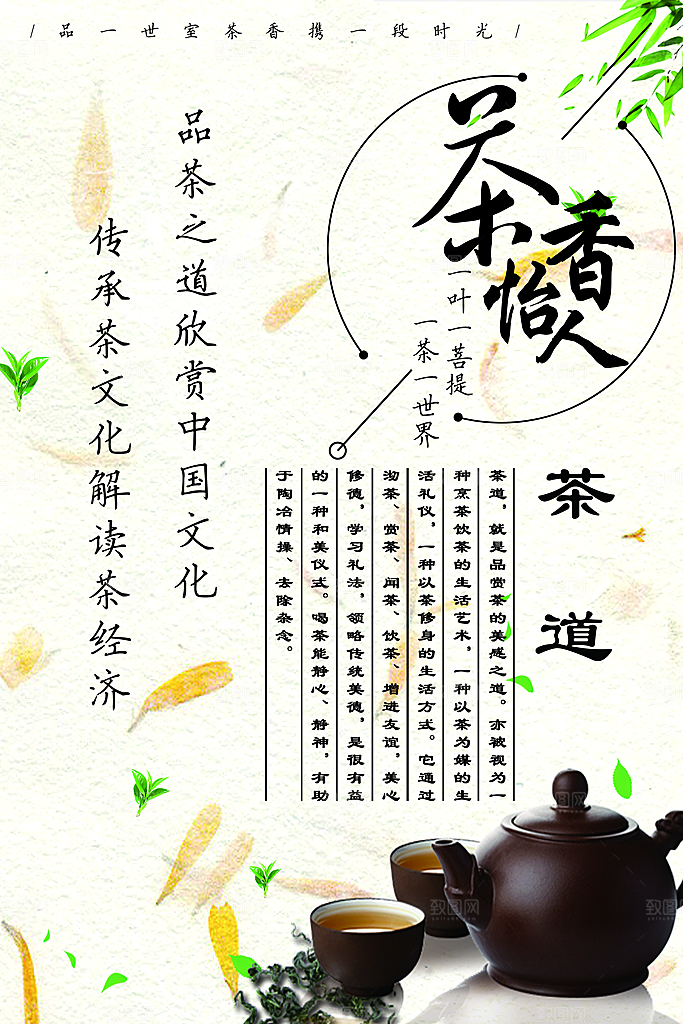 /品一世室茶香携一段时光/
茶香怡人
一叶一菩提
一茶一世界
品茶之道欣赏中国文化
传承茶文化解读茶经济
茶道
茶道，就是品赏茶的美感之道。亦被视为一
种烹茶饮茶的生活艺术，一种以茶为媒的生
活礼仪，一种以茶修身的生活方式。它通过
沏茶、赏茶、闻茶、饮茶、增进友谊，美心
修德，学习礼法，领略传统美德，是很有益
的一种和美仪式。喝茶能静心、静神，有助
于陶冶情操、去除杂念。
致图网
致图网
致图网